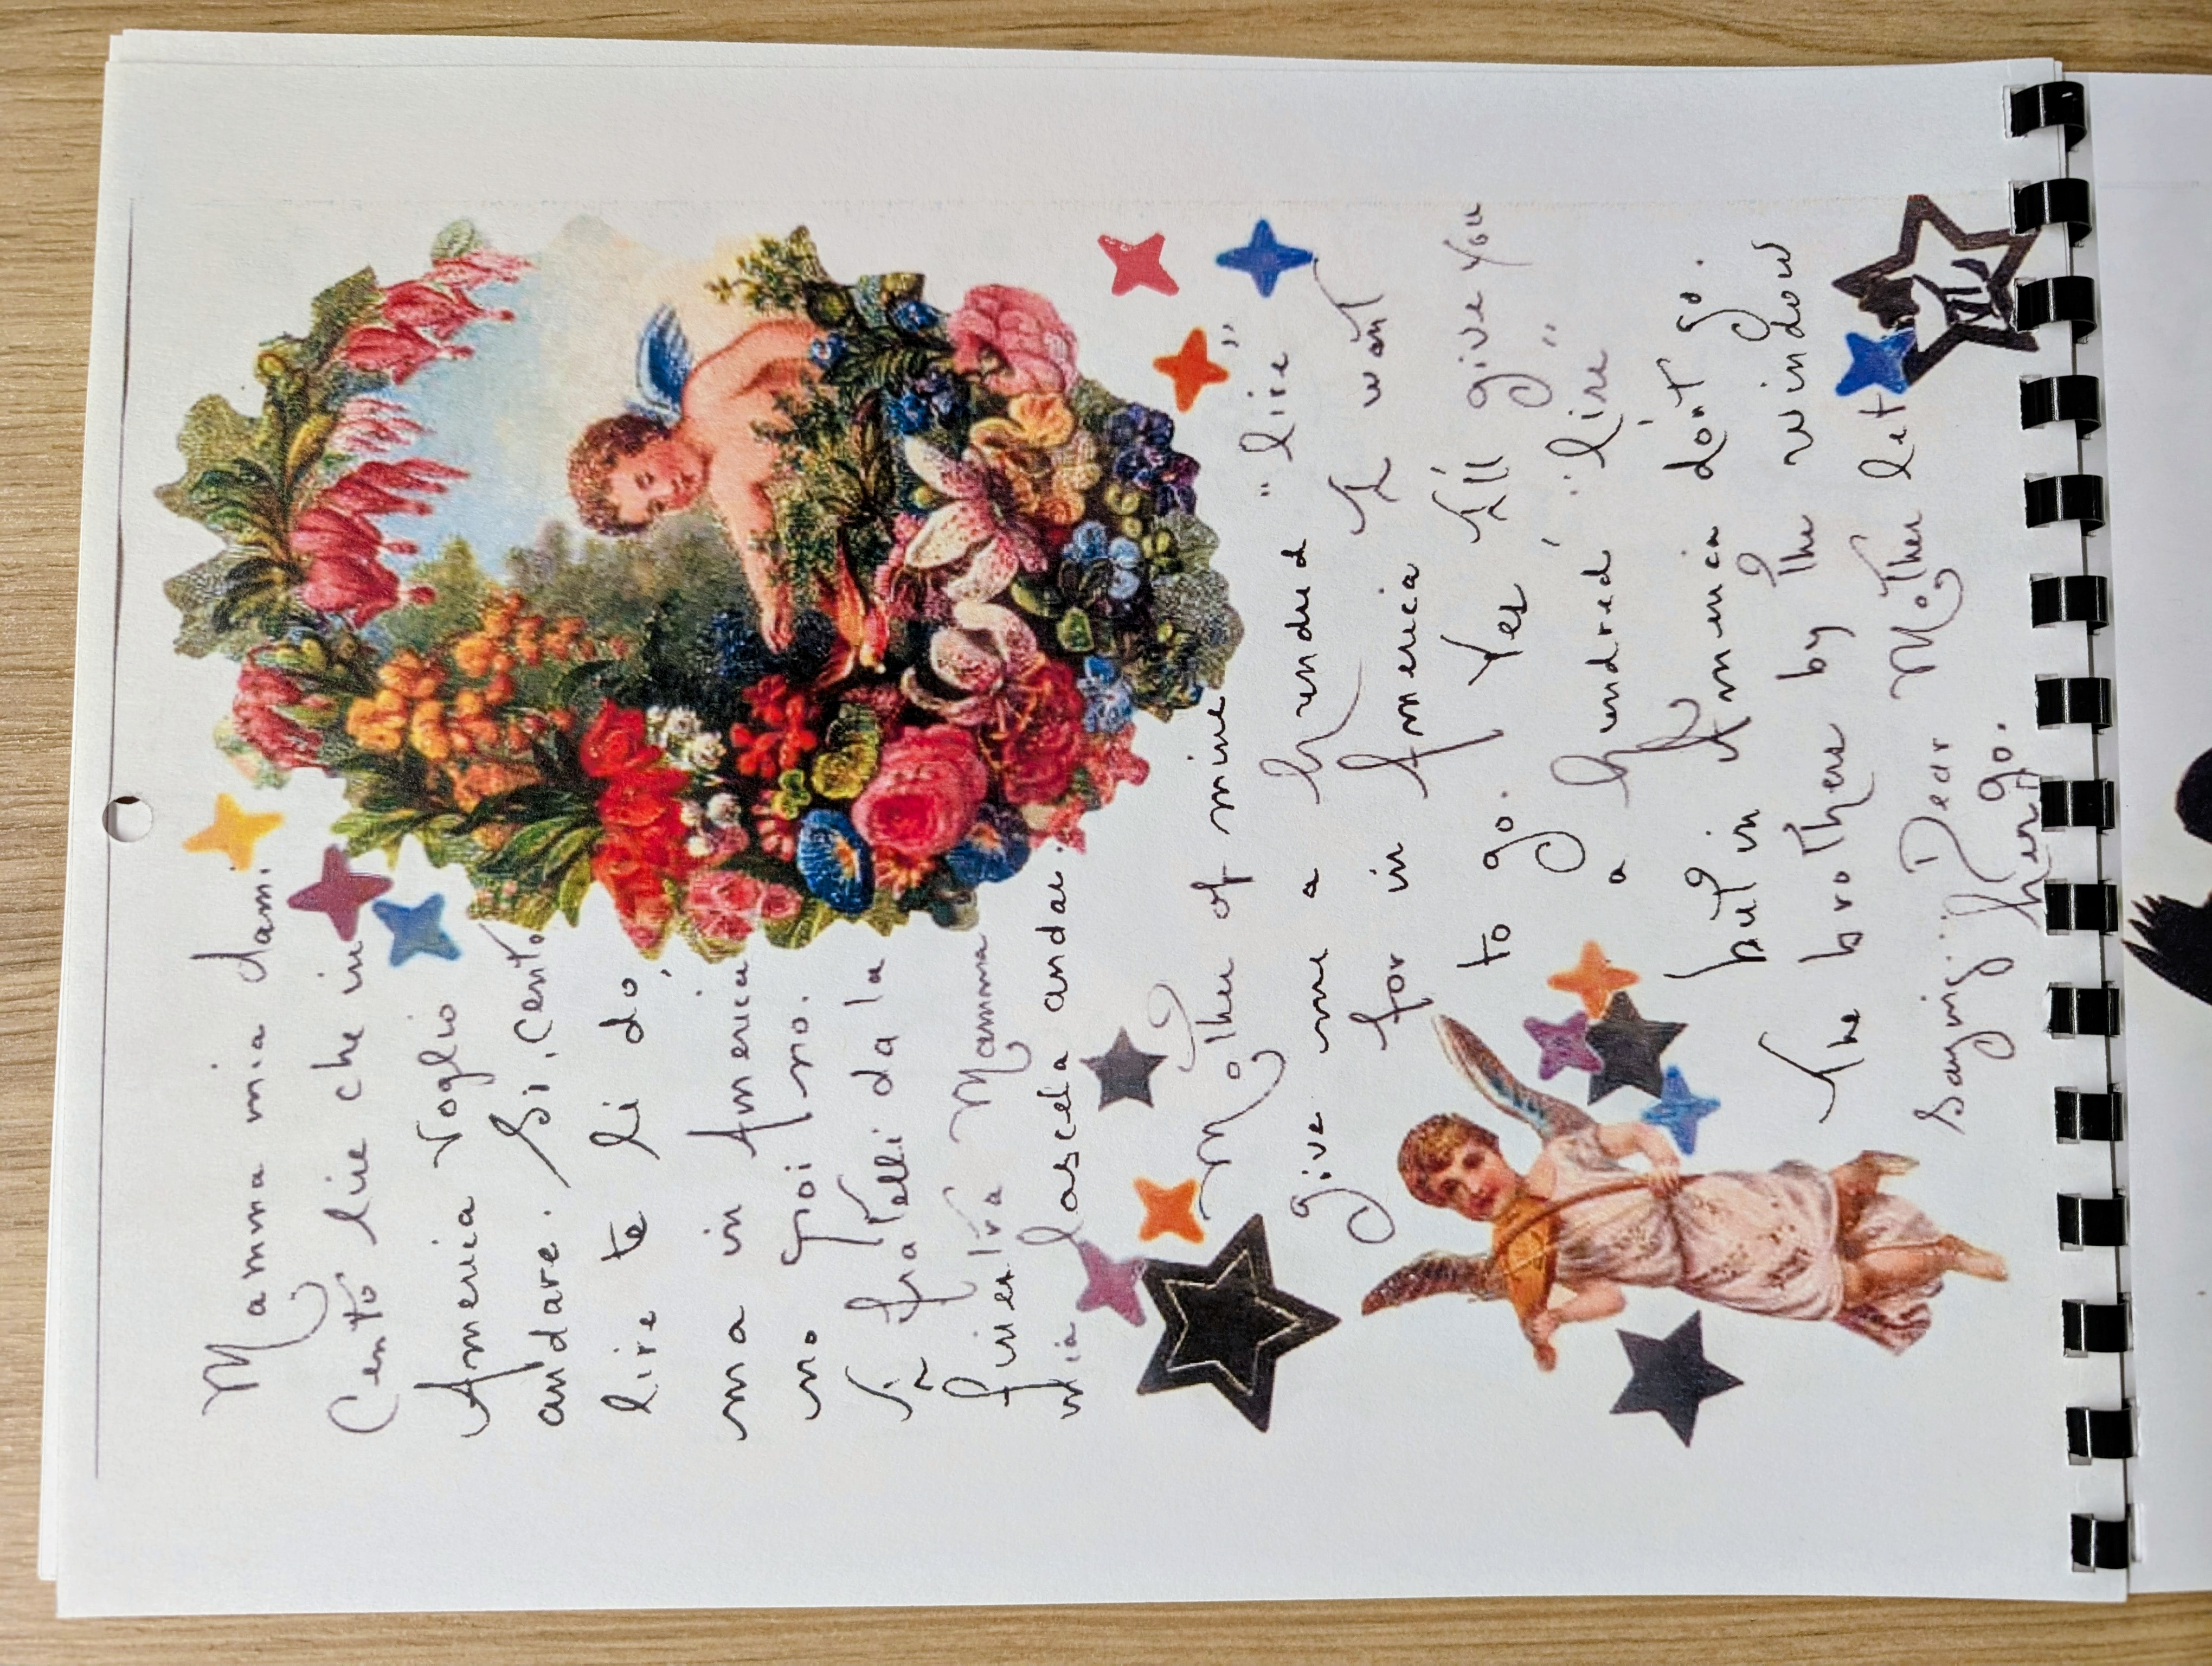 Mamma mia dami
Cento lire che in
America Voglio
andare. Si, cento,
lire te li do,
ma in America
no poi no.
fratelli da la
finestra Mamma
mia lascela andar.
Mother of mine
give me a hundred "lire"
for in America I want
to go. Yes I'll give you
a hundred "lire"
but in America do'nt go.
The brothers by the window
saying; Dear Mother let
her go.
XII